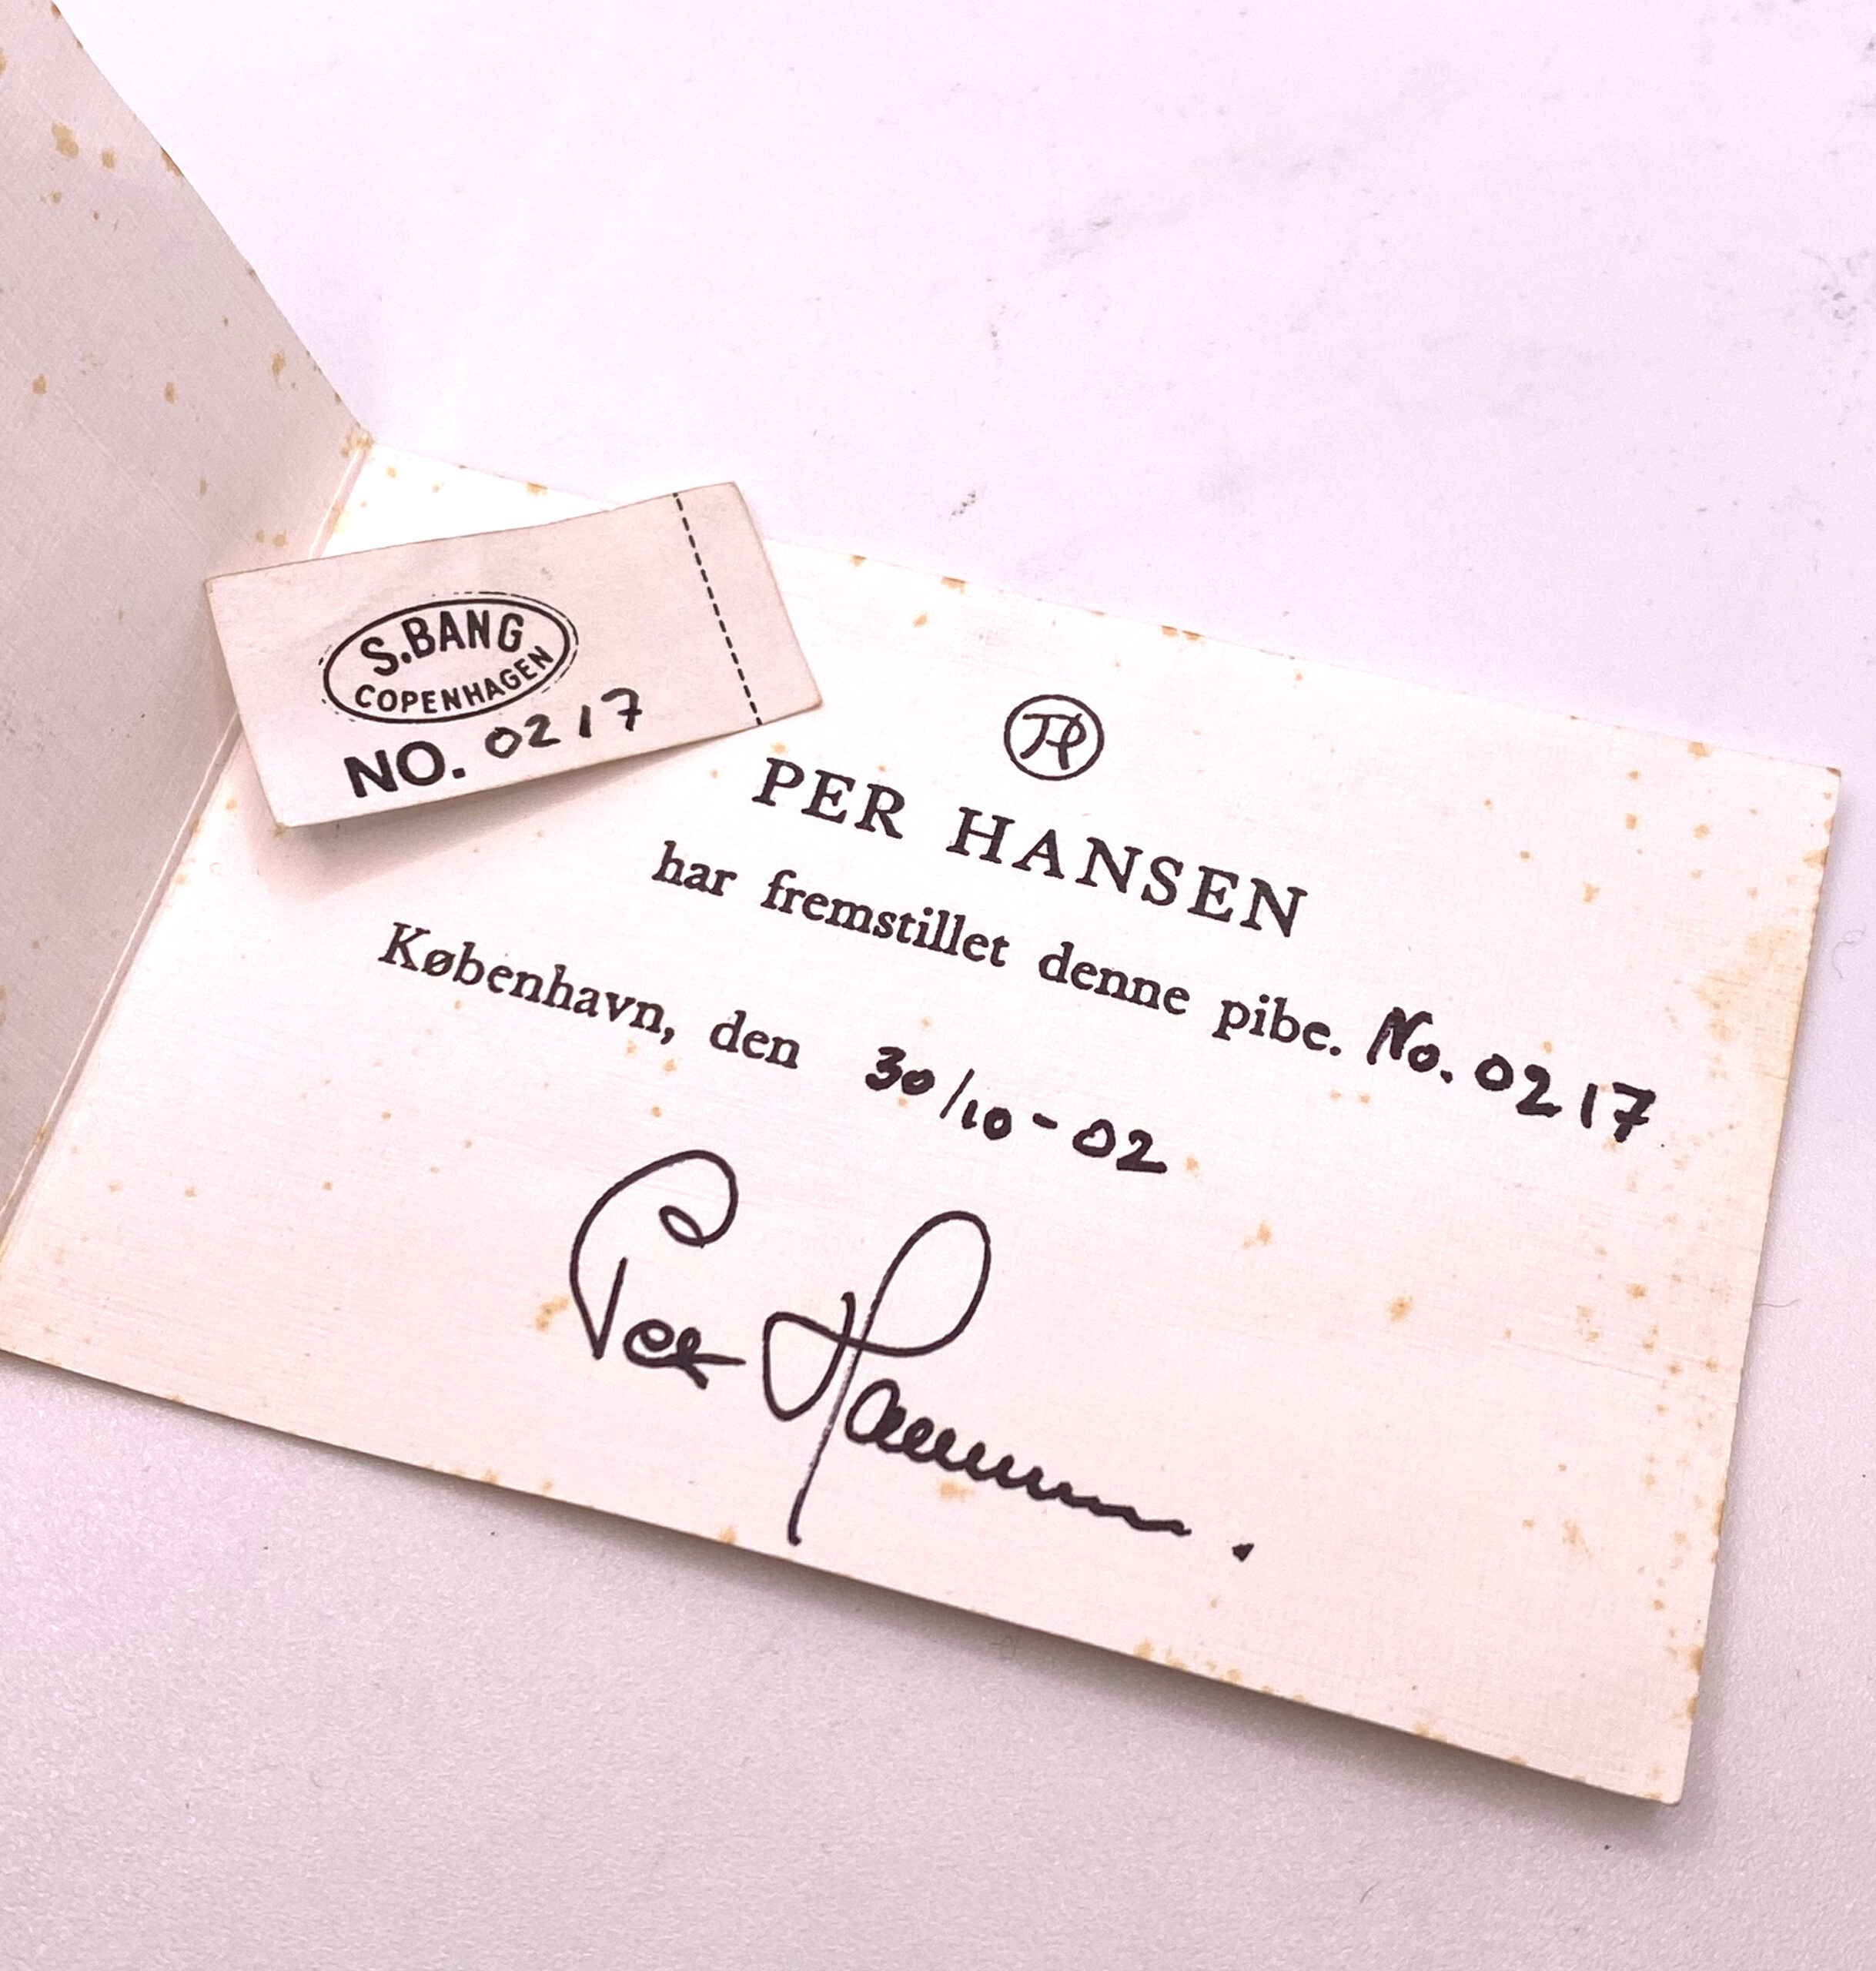 S.BANG
COPENHAGEN
NO. 0217
PH
PER HANSEN
har fremstillet denne pibe. No. 0217
København, den 30/10-02
Per Hansen.